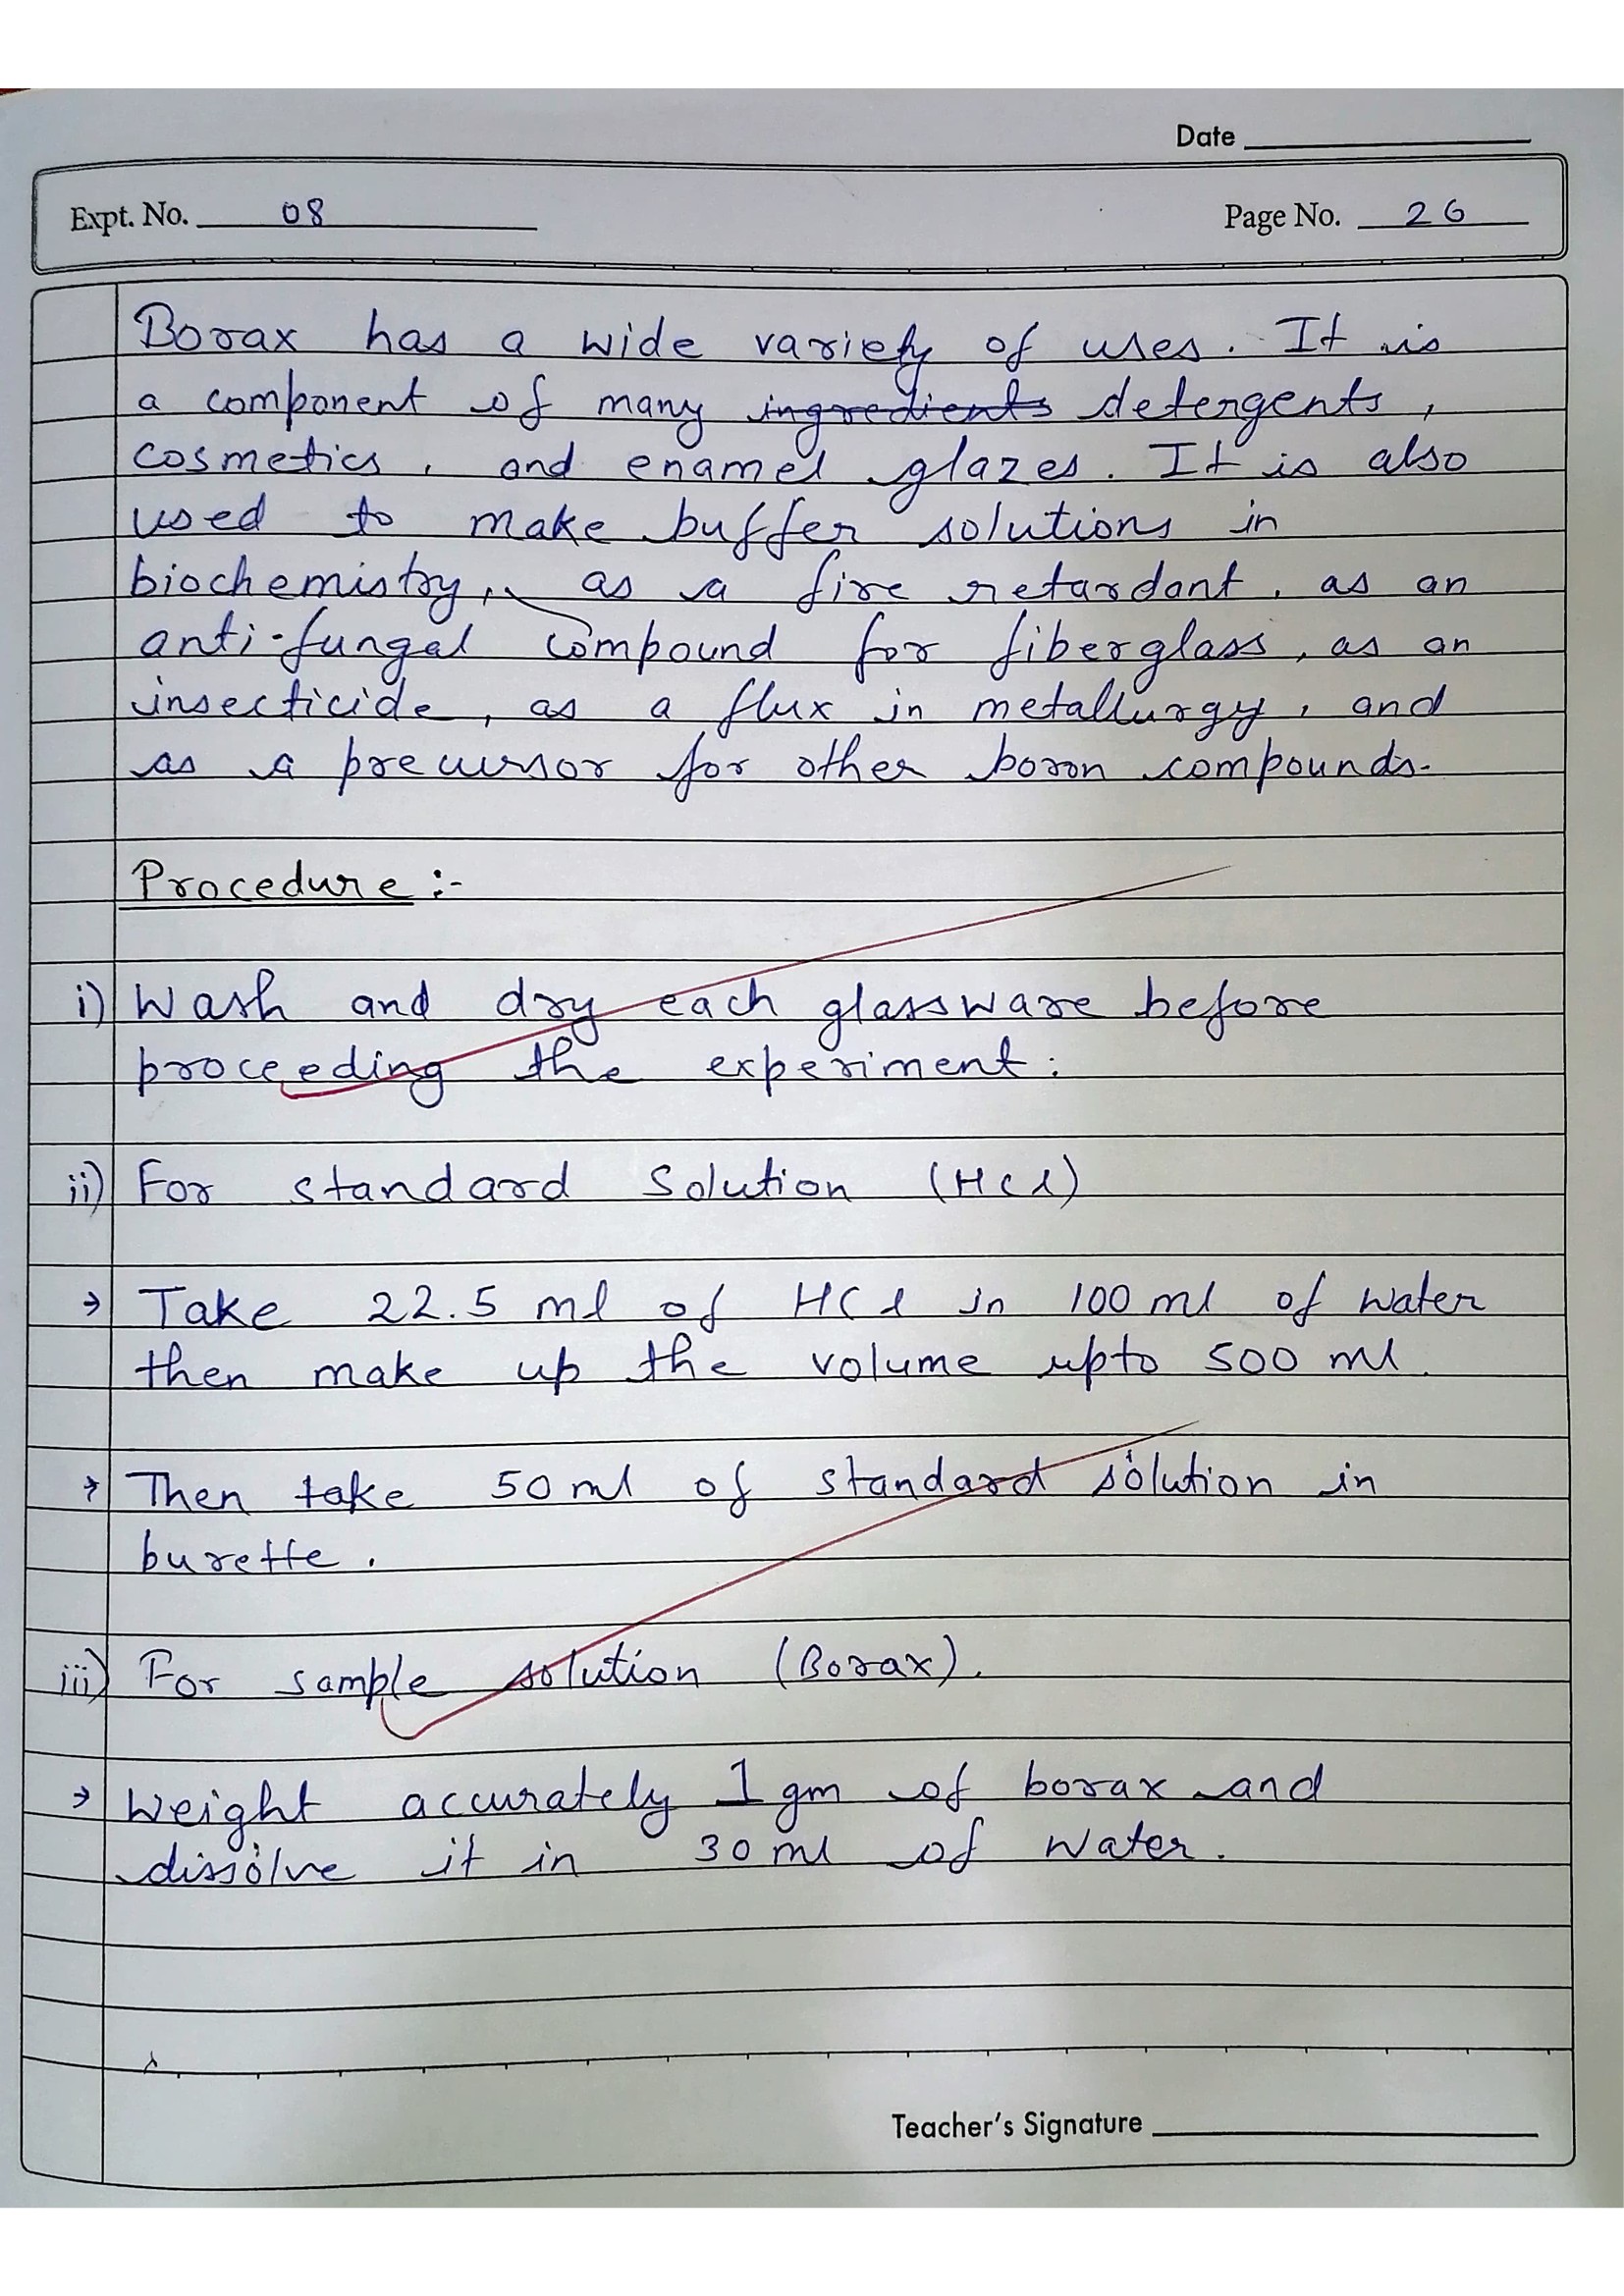 Date
Expt. No. 08 Page No. 26
Borax has a wide variety of uses. It is
a component of many ingredients detergents,
cosmetics, and enamel glazes. It is also
used to make buffer solutions in
biochemistry, as a fire retardant, as an
anti-fungal compound for fiberglass, as an
insecticide, as a flux in metallurgy, and
as a precursor for other boron compounds.
Procedure :-
i) Wash and dry each glassware before
proceeding the experiment.
ii) For standard Solution (HCl)
→ Take 22.5 ml of HCl in 100 ml of water
then make up the volume upto 500 ml.
→ Then take 50 ml of standard solution in
burette.
iii) For sample solution (Borax).
→ Weight accurately 1 gm of borax and
dissolve it in 30 ml of water.
Teacher's Signature